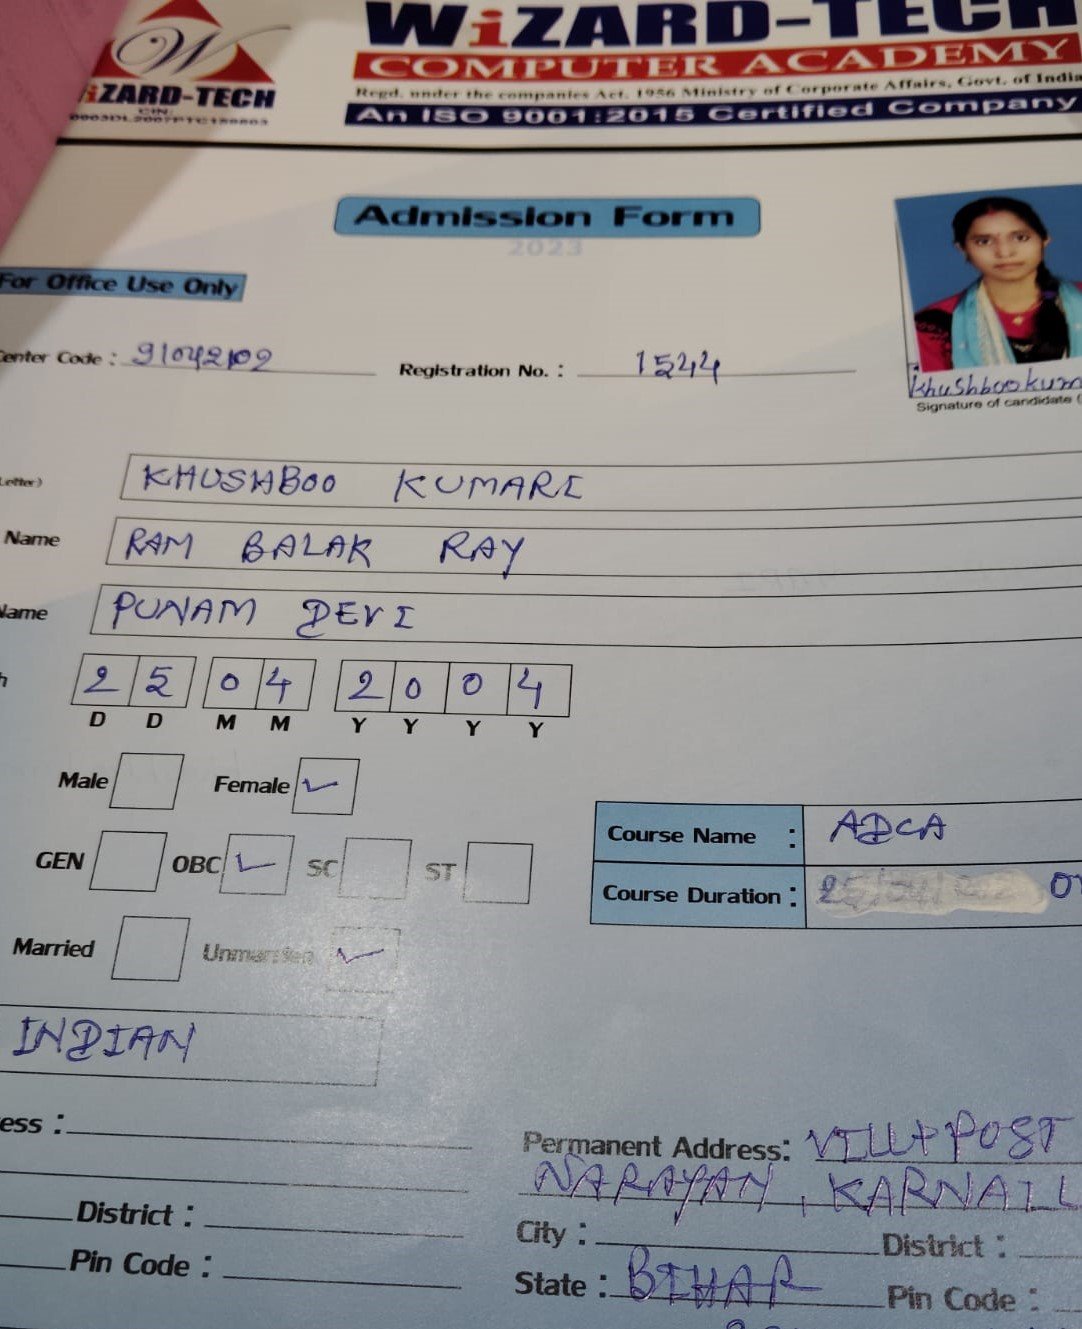 WiZARD-TECH
COMPUTER ACADEMY
Regd. under the companies Act. 1956 Ministry of Corporate Affairs, Govt. of India
An ISO 9001:2015 Certified Company
W
iZARD-TECH
CIN
Admission Form
2023
For Office Use Only
Center Code : 91042102
Registration No. : 1544
Khushboo kum
Signature of candidate (
Letter)
KHUSHBOO KUMARI
Name RAM BALAK RAY
Name PUNAM DEVI
h 25 04 2004
D D M M Y Y Y Y
Male Female ✓
GEN OBC ✓ SC ST
Course Name : ADCA
Course Duration :
Married Unmarried ✓
INDIAN
ess :
Permanent Address: VILL+POST
NARAYAN, KARNAIL
District :
City : District :
Pin Code :
State : BIHAR Pin Code :